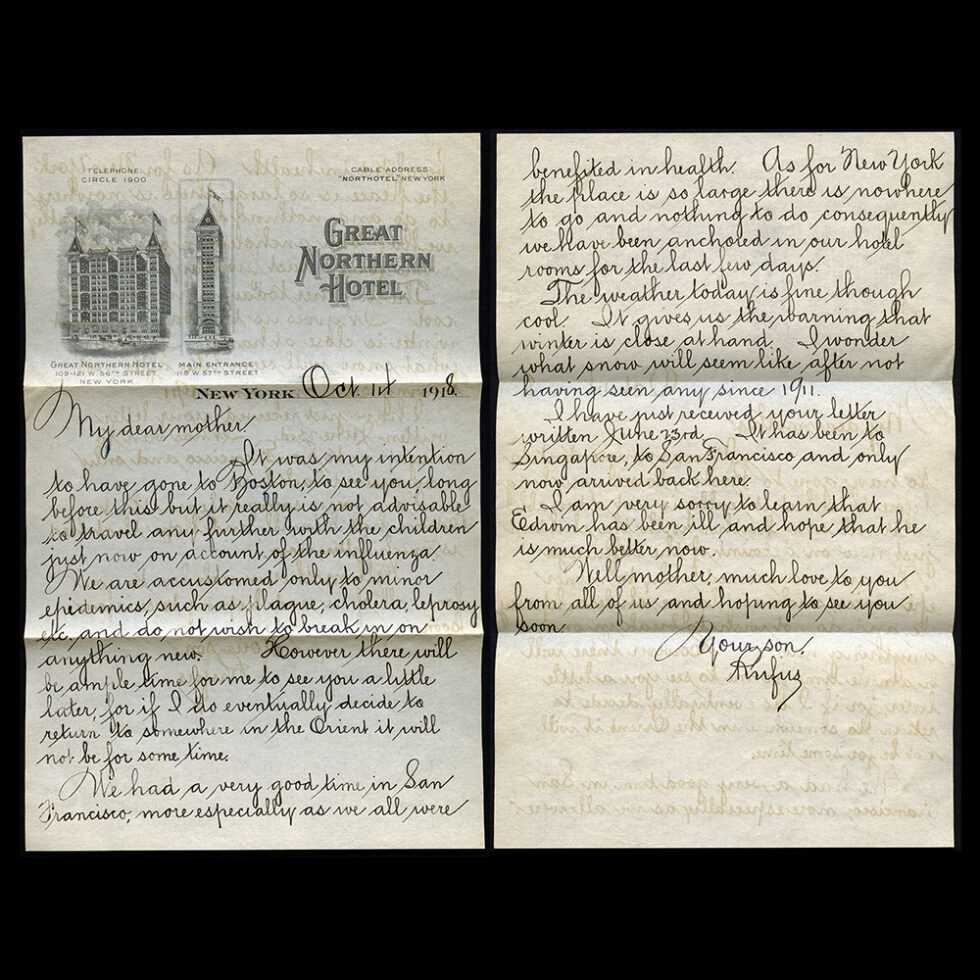 TELEPHONE
CIRCLE 1900
CABLE ADDRESS
"NORTHOTEL" NEW YORK
GREAT
NORTHERN
HOTEL
GREAT NORTHERN HOTEL
109-121 W. 56TH STREET
NEW YORK
MAIN ENTRANCE
118 W. 57TH STREET
NEW YORK Oct. 1st 1918.
My dear mother
It was my intention
to have gone to Boston, to see you long
before this but it really is not advisable
to travel any further with the children
just now on account of the influenza.
We are accustomed only to minor
epidemics, such as plague, cholera, leprosy
etc. and do not wish to break in on
anything new. However there will
be ample time for me to see you a little
later, for if I do eventually decide to
return to somewhere in the Orient it will
not be for some time.
We had a very good time in San
Francisco, more especially as we all were
benefited in health. As for New York
the place is so large there is nowhere
to go and nothing to do consequently
we have been anchored in our hotel
rooms for the last few days.
The weather today is fine though
cool. It gives us the warning that
winter is close at hand. I wonder
what snow will seem like after not
having seen any since 1911.
I have just received your letter
written June 23rd. It has been to
Singapore, to San Francisco and only
now arrived back here.
I am very sorry to learn that
Edwin has been ill and hope that he
is much better now.
Well mother, much love to you
from all of us and hoping to see you
soon
Your son.
Rufus